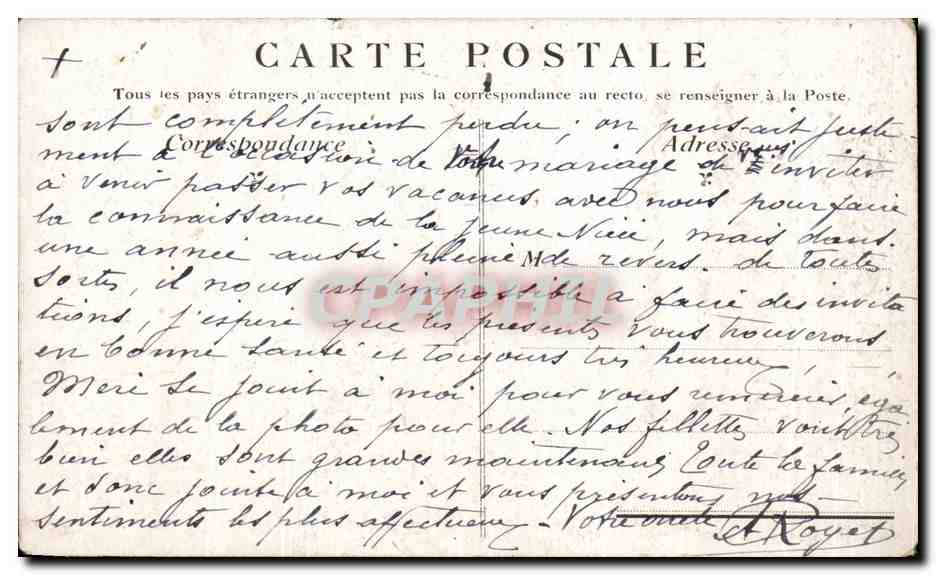 +
CARTE POSTALE
Tous les pays étrangers n'acceptent pas la correspondance au recto, se renseigner à la Poste.
Correspondance
Adresse
M
sont complètement perdu; on pensait juste-
ment à l'occasion de Votre mariage de vous inviter
à venir passer vos vacances avec nous pour faire
la connaissance de la jeune Nièce, mais dans
une année aussi pleine de revers de toute
sortes, il nous est impossible à faire des invita
tions, j'espère que les présentes vous trouverons
en bonne santé et toujours très heureux,
Mère se joint à moi pour vous remercier éga
lement de la photo pour elle. Nos fillettes vont très
bien elles sont grandes maintenant Toute la famille
et donc jointe à moi et vous présentons nos
sentiments les plus affectueux - Votre oncle
A Royet
CPAPHIL